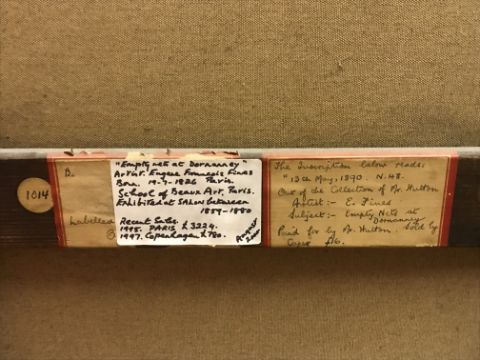 1014
B.
Labelled
"Empty net at Dornanney"
Artist. Eugene Francois Fines
Born. 19-7-1826 Paris.
School of Beaux Art, Paris.
Exhibited at SALON between
1859-1880
Recent Sales.
1995. PARIS £3224.
1997. Copenhagen £780.
The Inscription below reads:
"13th May, 1890. N.48.
Out of the Collection of Mr. Hutton
Artist:- E. Fines
Subject:- Empty Nets at
Dornanney
Paid for by Mr. Hutton. Sold by
£6.